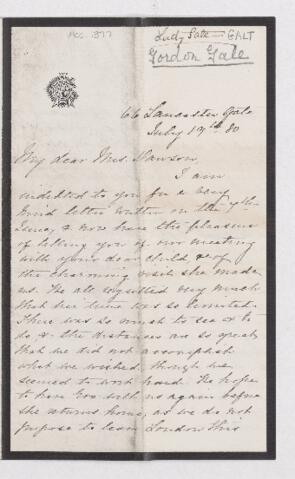 Acc. 1877
Lady Gate — GALT
Gordon Gale
66 Lancaster Gate
July 19th 80
My dear Mrs. Dawson,
I am
indebted to you for a very
kind letter written on the 7th
June, & now have the pleasure
of telling you of our meeting
with your dear child & of
the charming visit she made
us. We all regretted very much
that her time was so limited.
There was so much to see & to
do & the distances are so great
that we did not accomplish
what we wished, though we
seemed to work hard. We hope
to have her with us again before
she returns home, as we do not
propose to leave London this